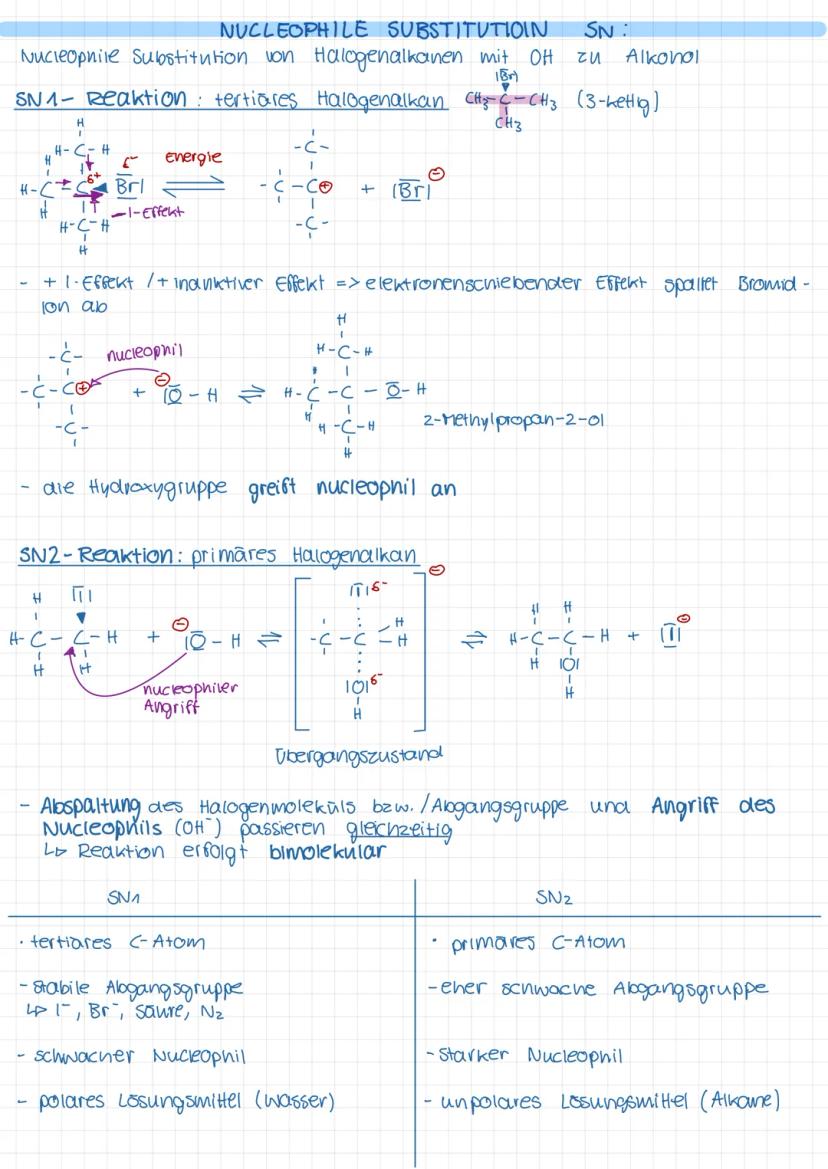 NUCLEOPHILE SUBSTITUTIOIN SN:
Nucleophile Substitution von Halogenalkanen mit OH zu Alkohol
|Br|
SN1-Reaktion: tertiäres Halogenalkan CH3-C-CH3 (3-kettig)
CH3
H
H-C-H
H δ+ Br| energie -C-
H-C-C -C-C⊕ + |Br| ⊖
H -I-Effekt
H-C-H -C-
H
- + I-Effekt /+ induktiver Effekt => elektronenschiebender Effekt spaltet Bromid-
Ion ab
H
-C- nucleophil H-C-H
-C-C⊕ + ⊖ |O-H ⇌ H-C-C-O-H
-C- H H-C-H 2-Methylpropan-2-ol
H
- die Hydroxygruppe greift nucleophil an
SN2-Reaktion: primäres Halogenalkan
H |I| |I| δ- ⊖ H H
H-C-C-H + ⊖ |O-H ⇌ -C-C-H H ⇌ H-C-C-H + |I| ⊖
H H |O| δ- H |O|
nucleophiler H H
Angriff
Übergangszustand
- Abspaltung des Halogenmoleküls bzw. /Abgangsgruppe und Angriff des
Nucleophils (OH⁻) passieren gleichzeitig
↳ Reaktion erfolgt bimolekular
SN1 SN2
· tertiäres C-Atom · primäres C-Atom
- stabile Abgangsgruppe - eher schwache Abgangsgruppe
↳ I⁻, Br⁻, Säure, N2
- schwacher Nucleophil - starker Nucleophil
- polares Lösungsmittel (Wasser) - unpolares Lösungsmittel (Alkane)